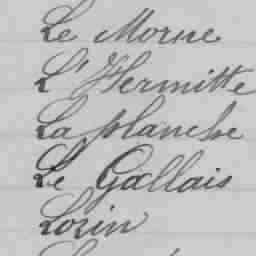 Le Morne
L'Hermitte
Laplanche
Le Gallais
Lorin